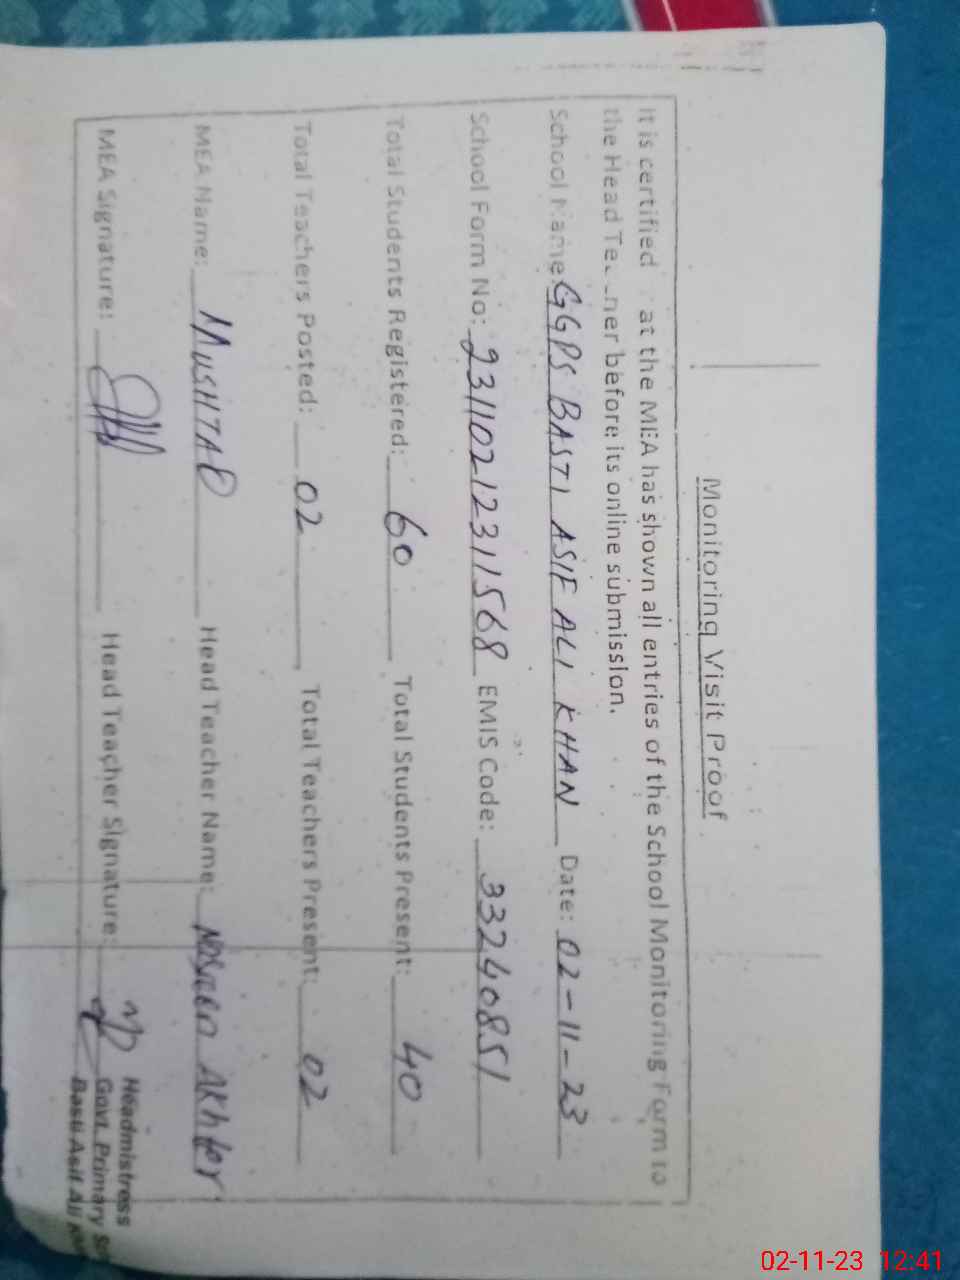 Monitoring Visit Proof
It is certified at the MEA has shown all entries of the School Monitoring Form to
the Head Te ner before its online submission.
School Name GGPS BASTI ASIF ALI KHAN Date: 02-11-23
School Form No: 23110212311568 EMIS Code: 33240851
Total Students Registered: 60 Total Students Present: 40
Total Teachers Posted: 02 Total Teachers Present: 02
MEA Name: MUSHTAQ Head Teacher Name: Akhter
MEA Signature: Head Teacher Signature:
Headmistress
Govt. Primary
Basti Asif Ali
02-11-23 12:41